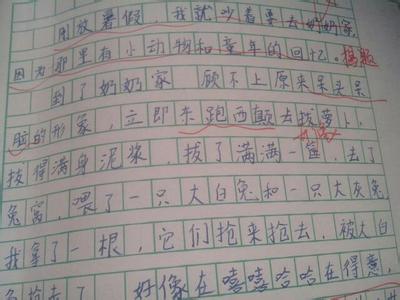 刚放暑假，我就吵着要去奶奶家，
因为那里有小动物和童年的回忆。
到了奶奶家 顾不上原来呆头呆
脑的形象，立即东跑西颠去拔萝卜，
拔得满身泥浆，拔了满满一筐，去了
兔窝，喂了一只大白兔和一只大灰兔
我拿了一根，它们抢来抢去，被大白
好像在嘻嘻哈哈在得意，